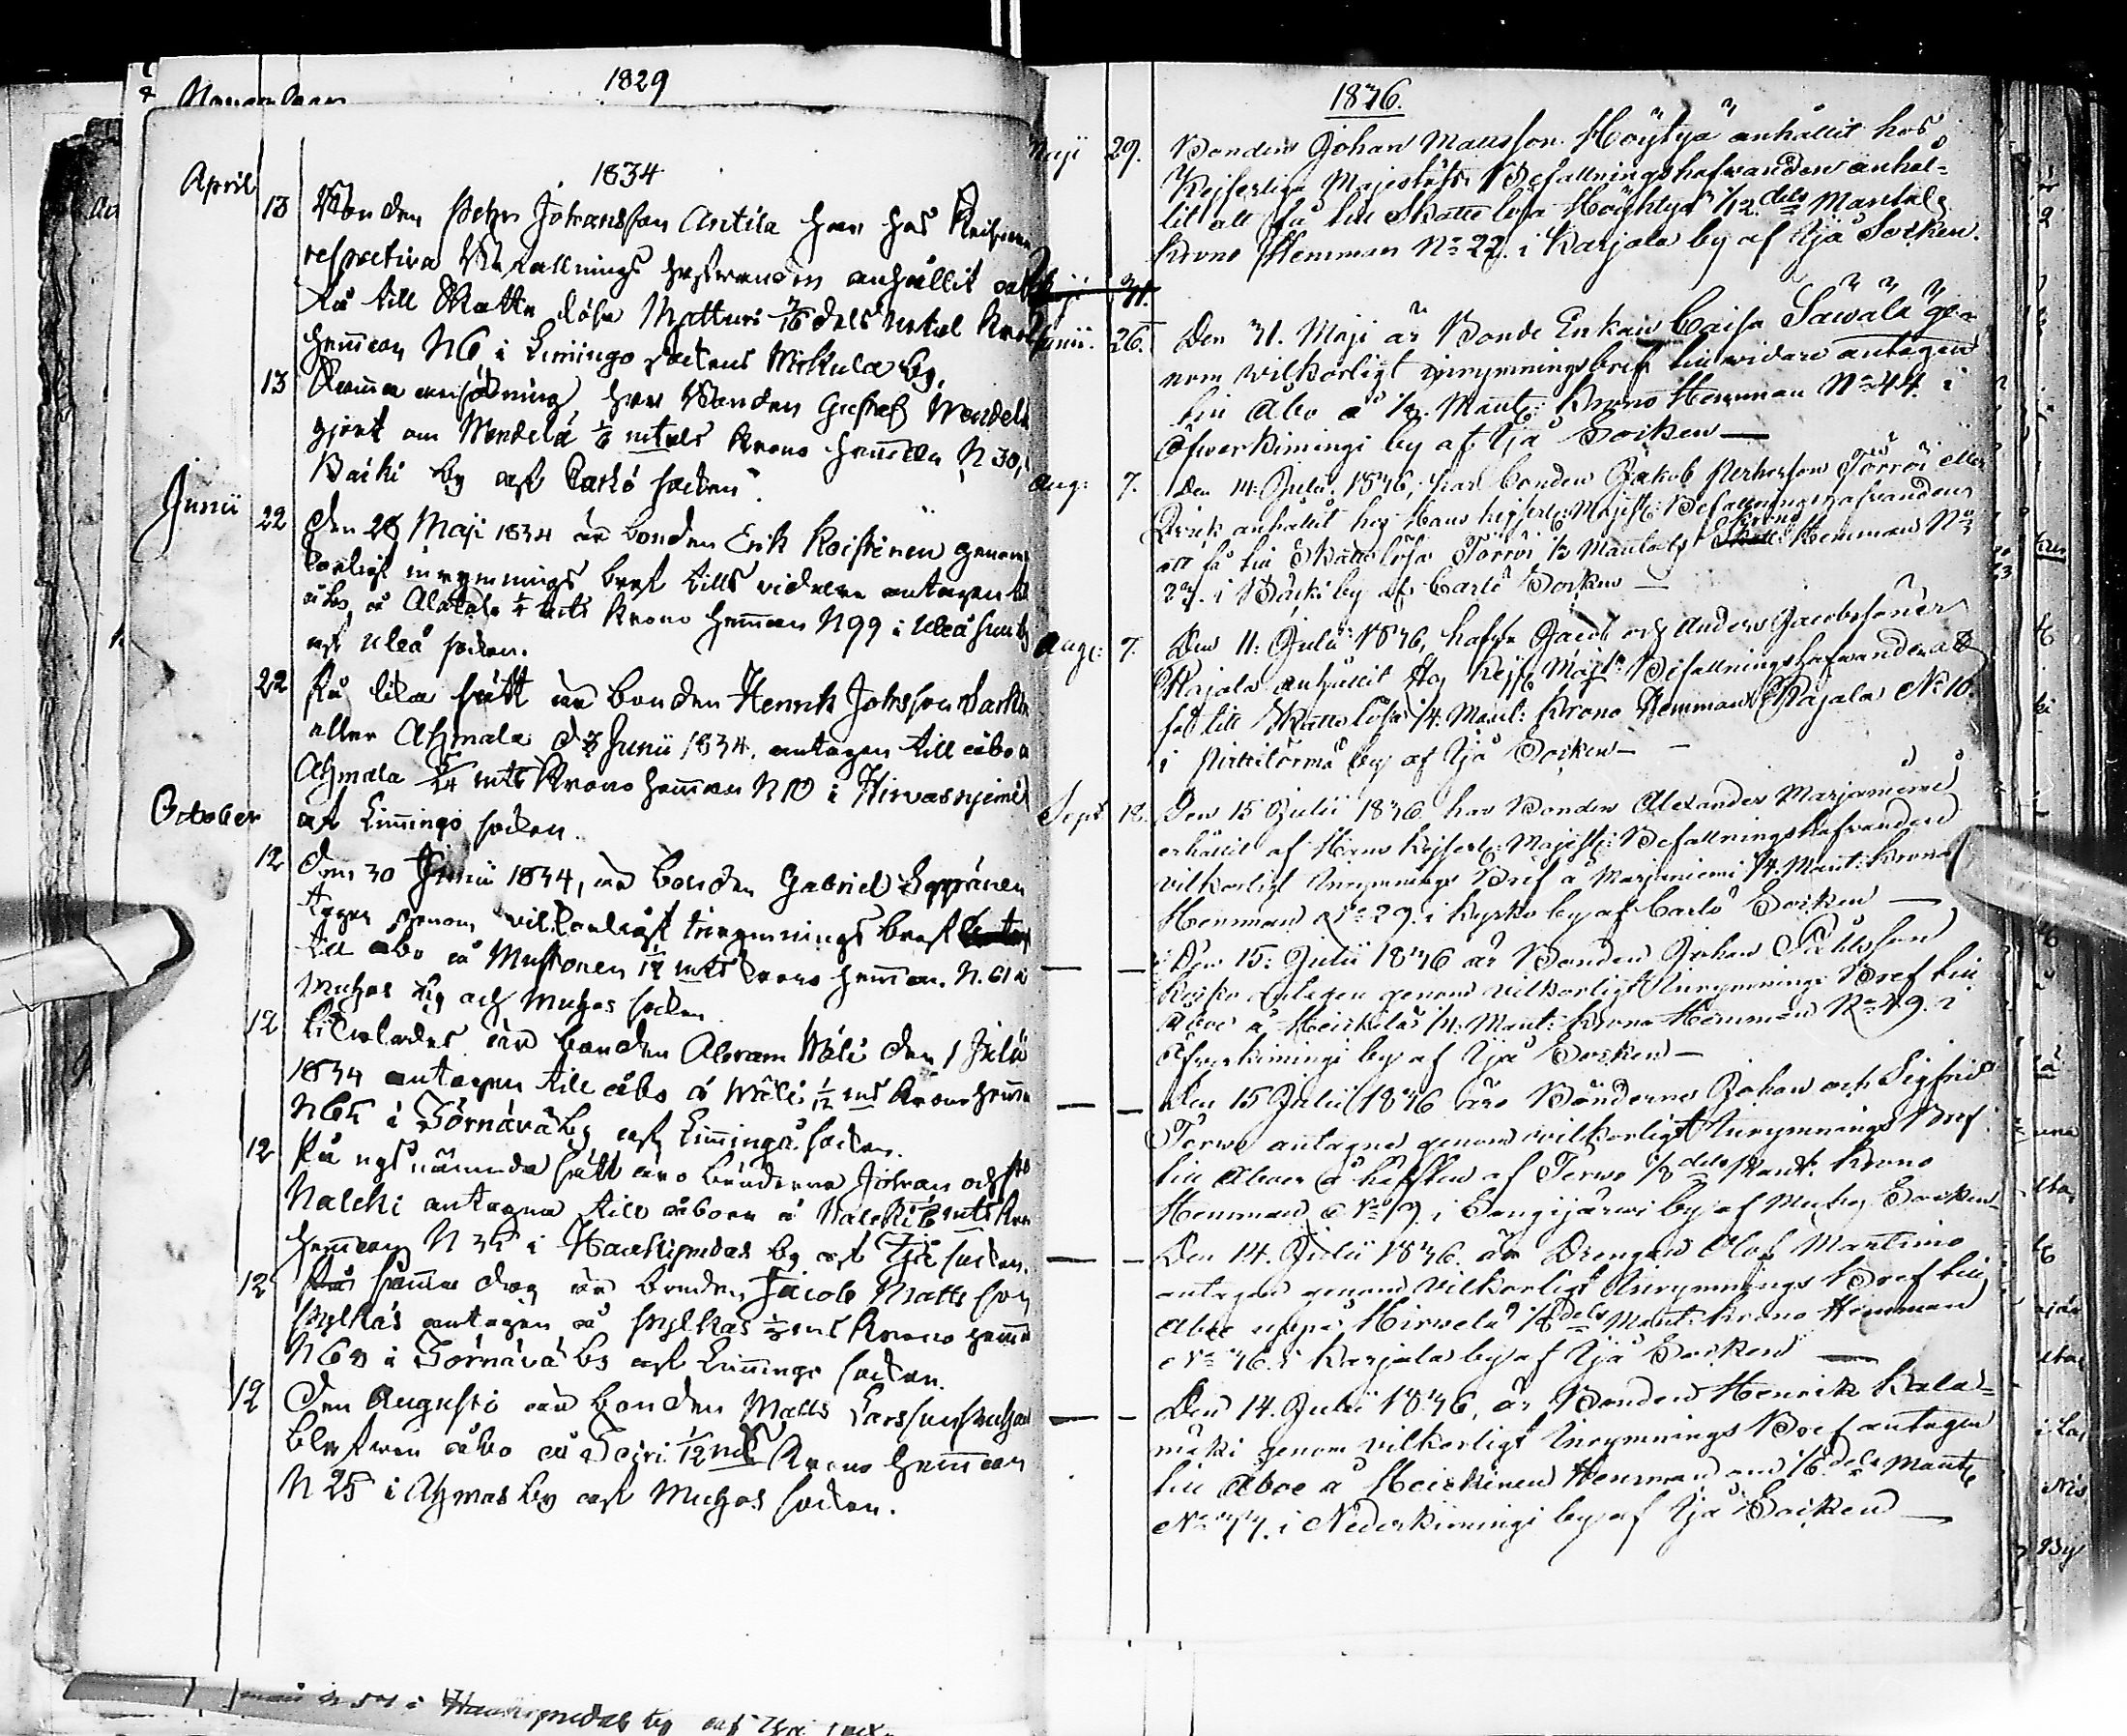 1829
1834
April
13 Bonden Petter Johansson Antila har hos Keiserens
respective Befallnings hafvanden anhållit att
få till Skatte lösa Matturi 7/16 dels mtal Krono
hemman N 6 i Limingo sockens Mickula by.
13 Samma ansökning har Bonden Gustaf Mendelä
gjort om Mendelä 1/6 mtals Krono hemman N 30, i
Bäcki by af Carlö socken.
Junii 22 Den 28 Maji 1834 är bonden Erik Koistinen genom
inrymnings bref tills vidare antagen till
åbo å Alatalo 1/4 mts Krono hemman N 99 i Uleå
af Uleå socken.
22 På lika sätt är bonden Henrik Johsson
eller Ahmala d 3 Junii 1834 antagen till åbo å
Ahmala 5/24 mts Krono hemman N 10 i Hirvasniemi
October af Limmingo socken.
12 Den 30 Junii 1834, är bonden Gabriel Seppänen
tagen genom vilkorligt inrymnings bref
till åbo å Mustonen 1/12 mts Krono hemman. N. 61 i
Muhos by och Muhos socken
12 Likaledes är bonden Abram Wäli den 1 Julii
1834 antagen till åbo å Wäli 1/12 mts Krono hemm
N 65 i Törnävä by af Liminga socken.
12 På nyssnämnda sätt äro bönderna Johan och
Nalcki antagna till åboer å Nalcki 1/6 mts Kro
hemman N 35 i Haukipudas by af Ijå socken.
12 samma dag är bonden Jacob Matts son
Pylkäs antagen å Pylkäs 1/3 mt Krono hemm
N 68 i Törnävä by af Limingo socken.
12 Den Augusti är bonden Matts Larsson
blefwen åbo å Soiri 1/12 mts Krono hemman
N 25 i Ahmas by af Muhos socken.
by af Ijå sock
1836.
Maji 29. Bonden Johan Mattsson Höyhtyä anhållit hos
Kejserliga Majestäts Befallningshafvanden anhål-
lit att få till Skatte lösa Höyhtyä 1/12 dels Mantals
Krono Hemman No 22. i Karjala by af Ijå Socken.
Maji 31.
Junii. 26. Den 31. Maji är Bonde Enkan Caisa Sawäla ge-
nom wilkorligt inrymnings bref till widare antagen
till Åbo å 1/3. Mantl: Krono Hemman No 44. i
Öfwerkiimingi by af Ijå Socken —
Aug: 7. Den 14: Julii. 1836, har bonden Jakob Pehrsson Törrö eller
anhållit hos Hans kejserl: Majest: Befallningshafvanden
att få till Skatte lösa Törrö 1/3 Mantals Krono Hemman No
23. i Bäcki by af Carlö Socken —
Aug: 7. Den 11: Julii 1836, hafva Jacob och Anders Jacobssöner
Rajala anhållit Hos Kejs: Majt: Befallningshafwanden att
få till Skatte lösa 1/4. Mant: Krono Hemman Rajala No 10.
i by af Ijå Socken —
Sept 18. Den 15 Julii 1836. har Bonden Alexander Marjaniemi
erhållit af Hans kejserl: Majest: Befallningshafvanden
vilkorligt Inrymnings Bref å Marjaniemi 1/4. Mant: Krono
Hemman No 29. i Kyrko by af Carlö Socken —
— — Den 15: Julii 1836 är Bonden Johan Påhlsson
antagen genom vilkorligt Inrymnings Bref till
Åboe å Heickelä 1/4. Mant: Krono Hemman No 49. i
Öfverkiimingi by af Ijå Socken —
— — Den 15 Julii 1836 äro Bönderne Johan och Sigfrid
Torwe antagne genom wilkorligt Inrymnings Bref
till Åboer å hälften af Terwe 1/3 dels Mant: Krono
Hemman No 19. i Sangijärwi by af Muhos Socken
— — Den 14. Julii 1836. är Drengen Olof Martimo
antagen genom vilkorligt Inrymnings Bref till
Åboe uppå Hirwelä 1/8 dels Mant: Krono Hemman
No 36. i Karjala by af Ijå Socken —
— — Den 14. Julii 1836, är Bonden Henrik Kala-
mäki genom vilkorligt Inrymnings Bref antagen
till Åboe å Heickinen Hemman om 1/6 dels Mantl
No 77. i Nederkiimingi by af Ijå Socken —